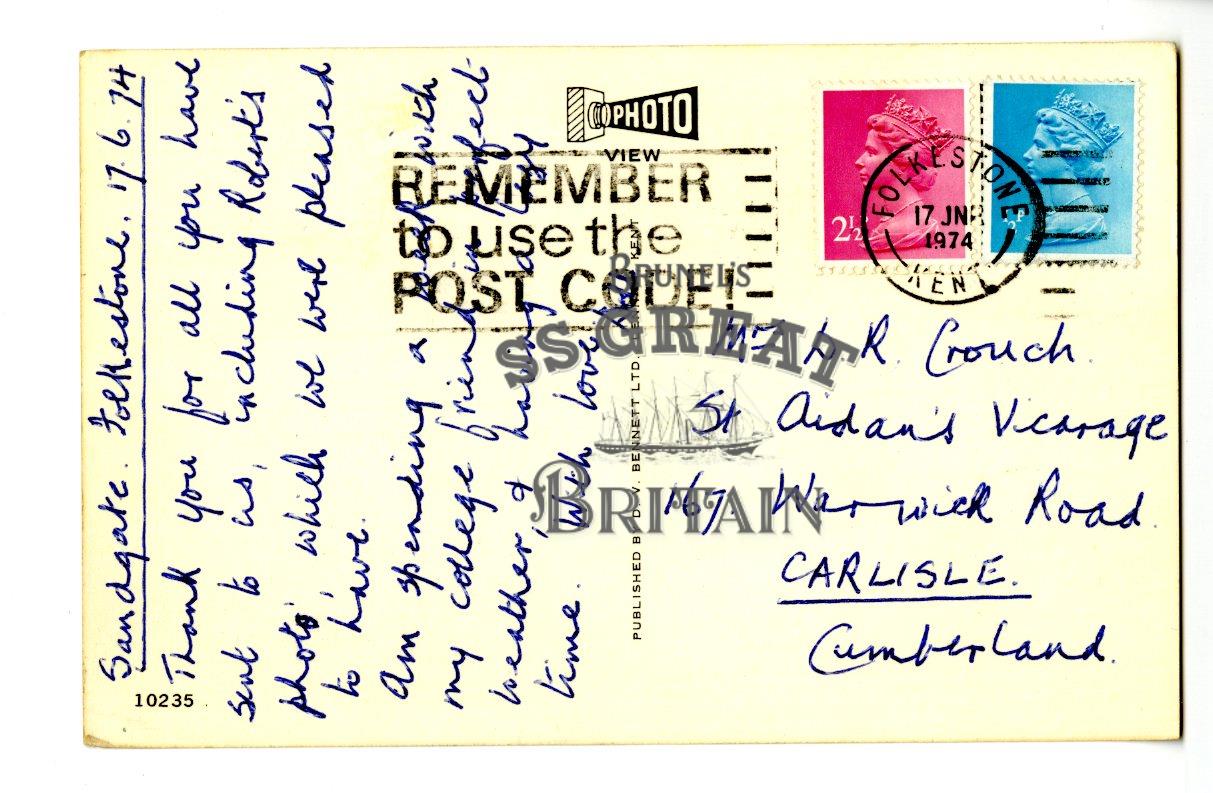 Sandgate. Folkestone. 17.6.74
Thank you for all you have
sent to us, including Robert's
photo, which we were pleased
to have.
Am spending a week with
my college friend in perfect
weather, & having a lazy
time. With love
10235
PHOTO
VIEW
REMEMBER
to use the
POST CODE!
FOLKESTONE
17 JNE
1974
KENT
2½
½P
PUBLISHED BY D. V. BENNETT LTD. KENT
BRUNEL'S
SS GREAT
BRITAIN
Mr L. R. Crouch.
St Aidan's Vicarage
167. Warwick Road.
CARLISLE.
Cumberland.